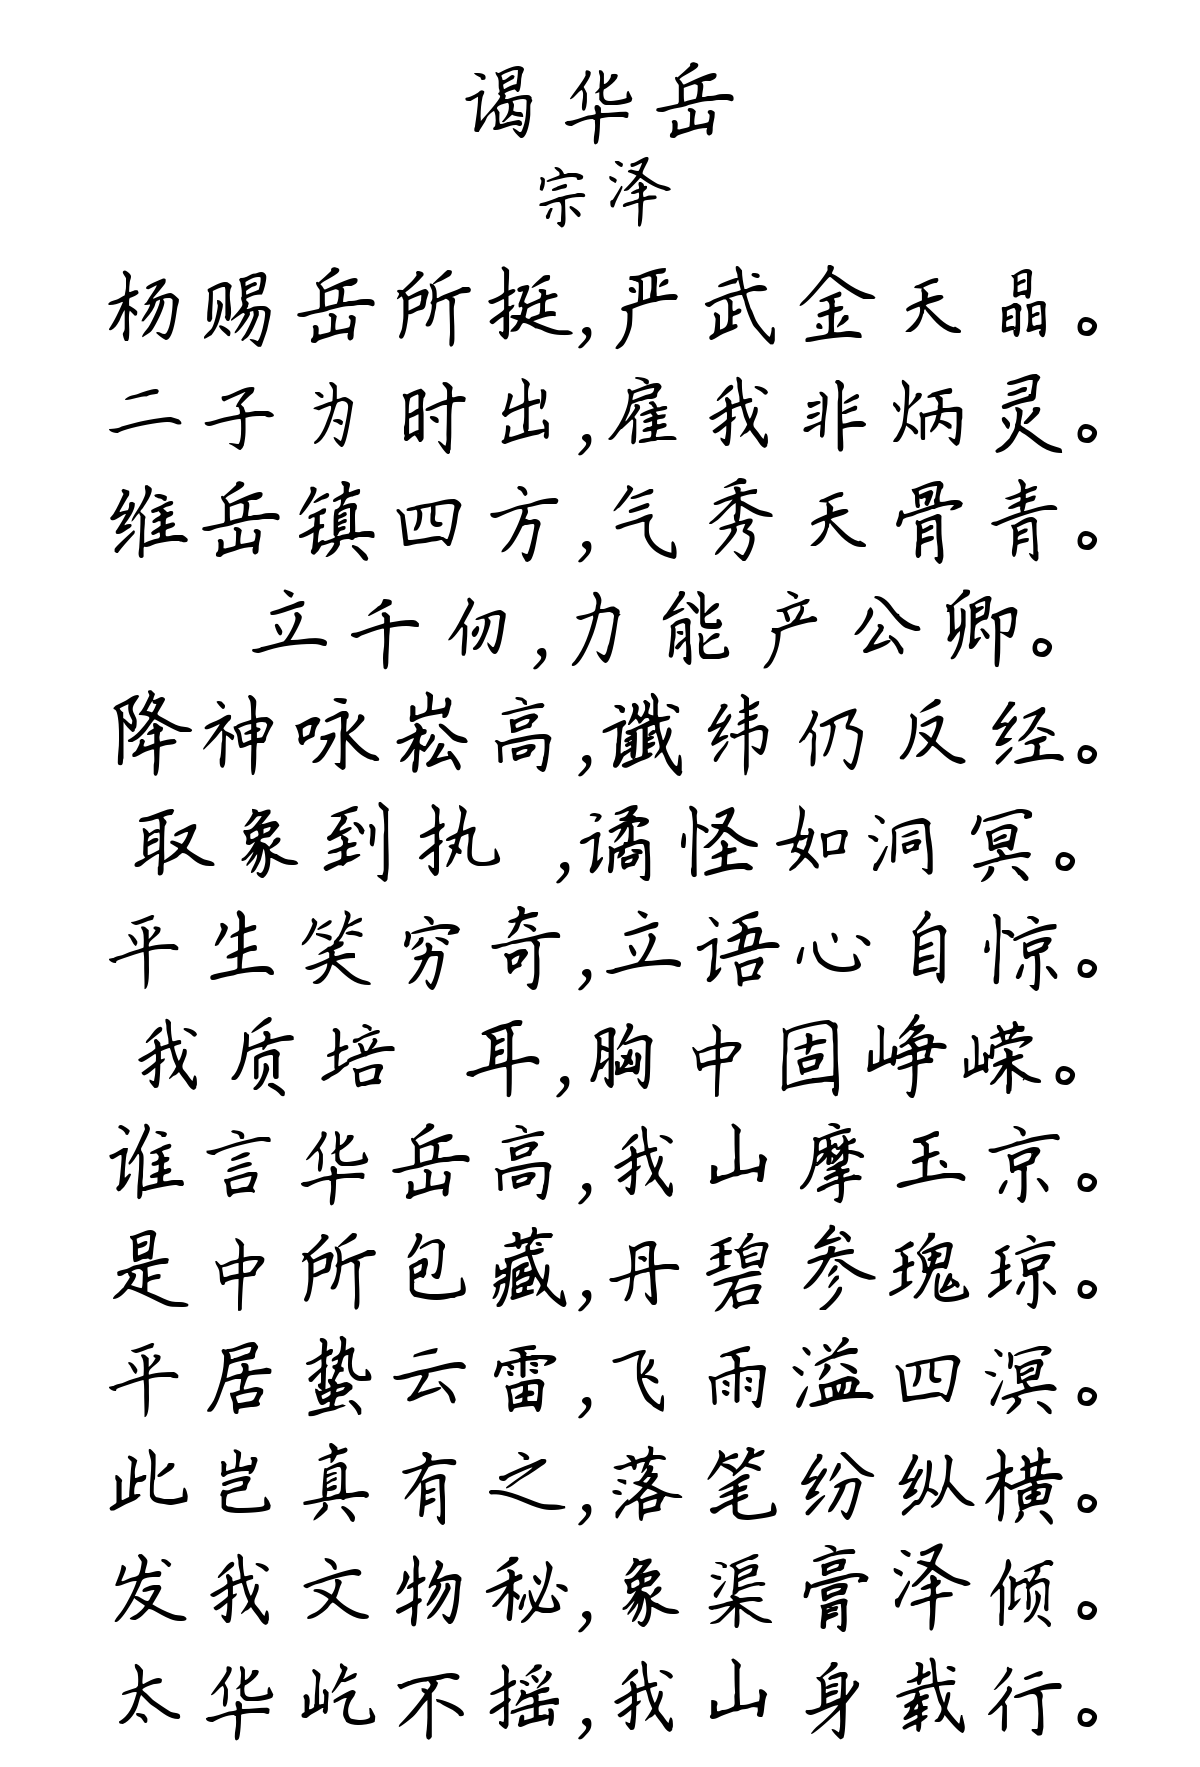 谒华岳
宗泽
杨赐岳所挺,严武金天晶。
二子为时出,雇我非炳灵。
维岳镇四方,气秀天骨青。
立千仞,力能产公卿。
降神咏崧高,谶纬仍反经。
取象到执 ,谲怪如洞冥。
平生笑穷奇,立语心自惊。
我质培 耳,胸中固峥嵘。
谁言华岳高,我山摩玉京。
是中所包藏,丹碧参瑰琼。
平居蛰云雷,飞雨溢四溟。
此岂真有之,落笔纷纵横。
发我文物秘,象渠膏泽倾。
太华屹不摇,我山身载行。